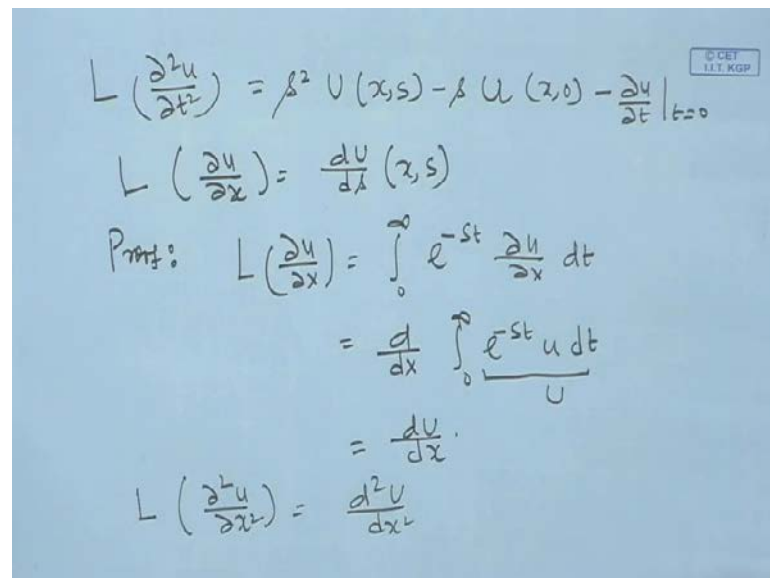 © CET
I.I.T. KGP
L (∂²u/∂t²) = s² U (x,s) - s U (x,0) - ∂u/∂t |t=0
L (∂u/∂x) = dU/ds (x,s)
Proof: L (∂u/∂x) = ∫₀^∞ e^-st ∂u/∂x dt
= d/dx ∫₀^∞ e^-st u dt
U
= dU/dx.
L (∂²u/∂x²) = d²U/dx²